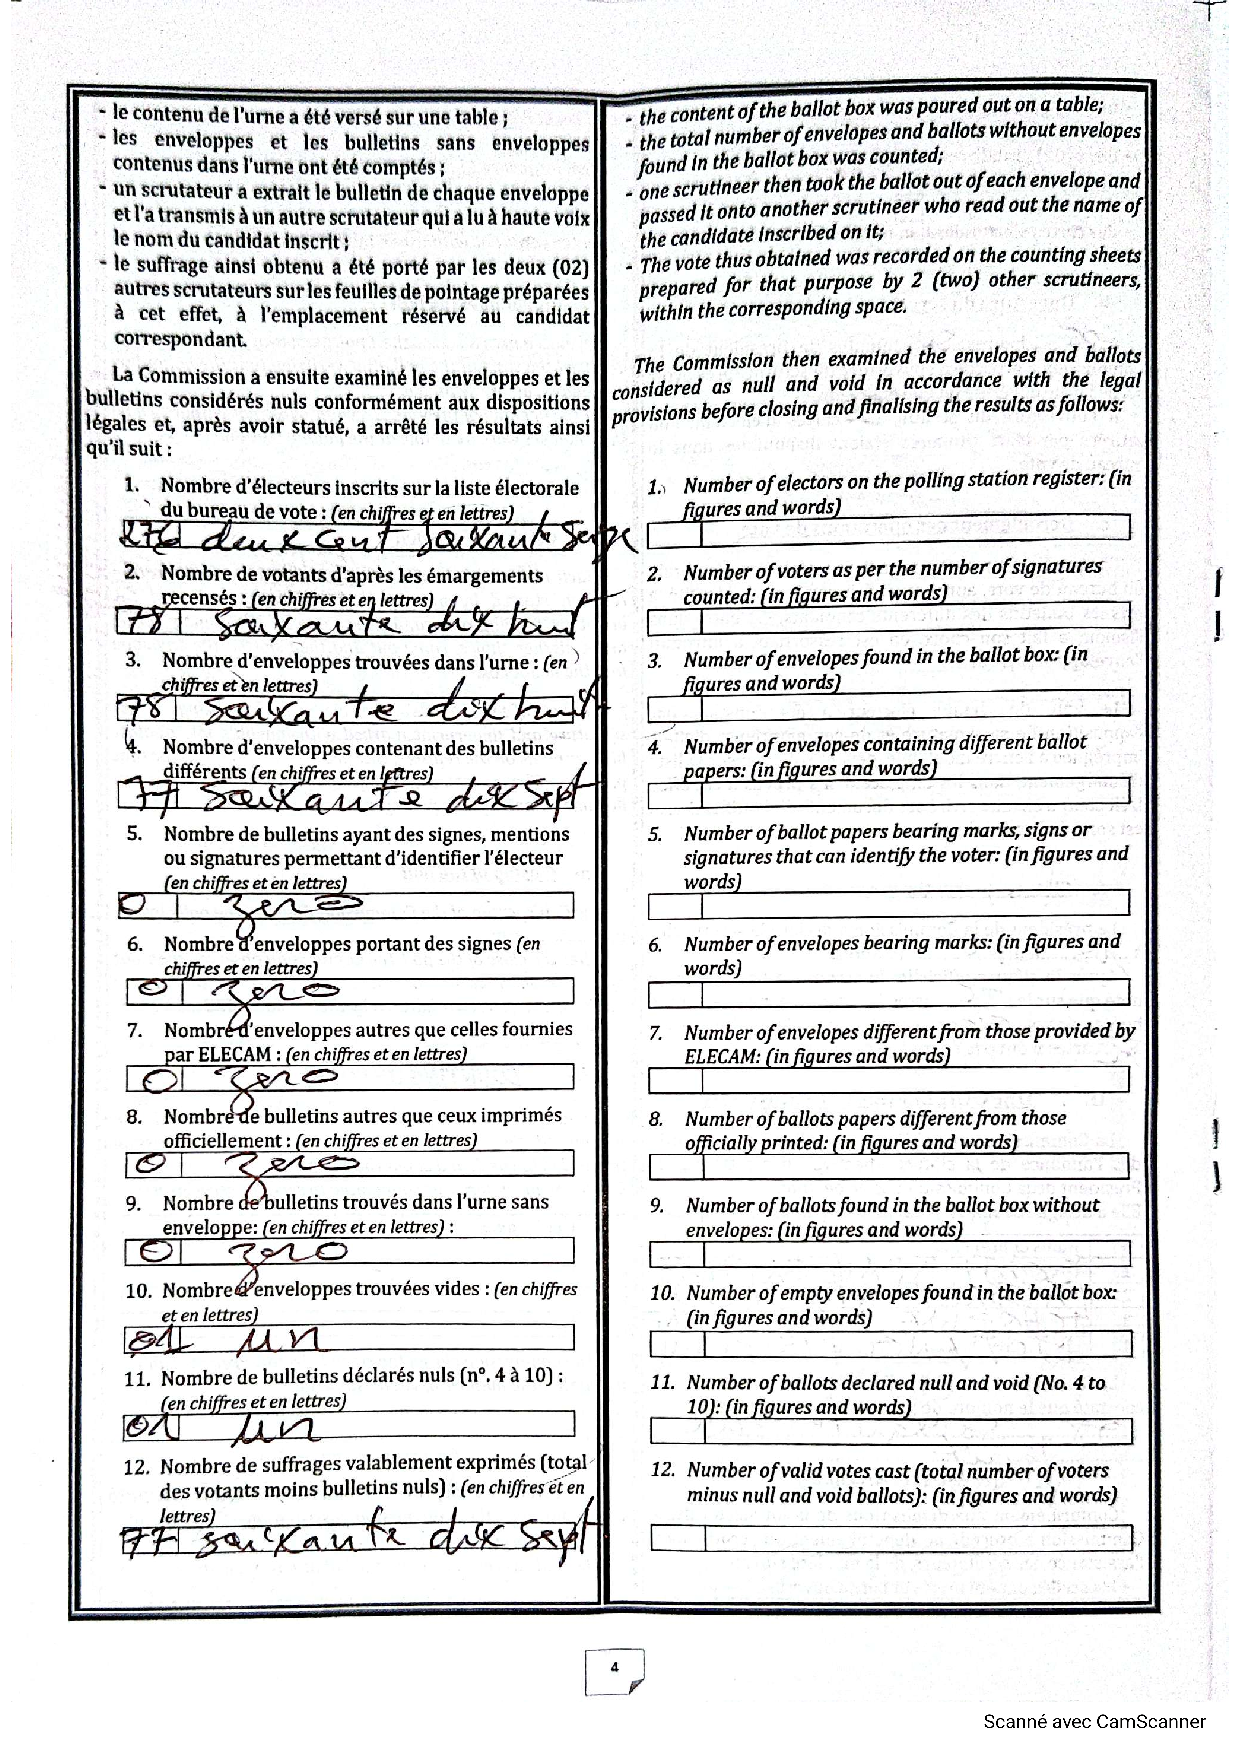 - le contenu de l'urne a été versé sur une table ;
- les enveloppes et les bulletins sans enveloppes
contenus dans l'urne ont été comptés ;
- un scrutateur a extrait le bulletin de chaque enveloppe
et l'a transmis à un autre scrutateur qui a lu à haute voix
le nom du candidat inscrit ;
- le suffrage ainsi obtenu a été porté par les deux (02)
autres scrutateurs sur les feuilles de pointage préparées
à cet effet, à l'emplacement réservé au candidat
correspondant.
La Commission a ensuite examiné les enveloppes et les
bulletins considérés nuls conformément aux dispositions
légales et, après avoir statué, a arrêté les résultats ainsi
qu'il suit :
1. Nombre d'électeurs inscrits sur la liste électorale
du bureau de vote : (en chiffres et en lettres)
276 deux cent soixante seize
2. Nombre de votants d'après les émargements
recensés : (en chiffres et en lettres)
78 soixante dix huit
3. Nombre d'enveloppes trouvées dans l'urne : (en
chiffres et en lettres)
78 soixante dix huit
4. Nombre d'enveloppes contenant des bulletins
différents (en chiffres et en lettres)
77 soixante dix sept
5. Nombre de bulletins ayant des signes, mentions
ou signatures permettant d'identifier l'électeur
(en chiffres et en lettres)
0 zero
6. Nombre d'enveloppes portant des signes (en
chiffres et en lettres)
0 zero
7. Nombre d'enveloppes autres que celles fournies
par ELECAM : (en chiffres et en lettres)
0 zero
8. Nombre de bulletins autres que ceux imprimés
officiellement : (en chiffres et en lettres)
0 zero
9. Nombre de bulletins trouvés dans l'urne sans
enveloppe: (en chiffres et en lettres) :
0 zero
10. Nombre d'enveloppes trouvées vides : (en chiffres
et en lettres)
01 un
11. Nombre de bulletins déclarés nuls (n°. 4 à 10) :
(en chiffres et en lettres)
01 un
12. Nombre de suffrages valablement exprimés (total
des votants moins bulletins nuls) : (en chiffres et en
lettres)
77 soixante dix sept
- the content of the ballot box was poured out on a table;
- the total number of envelopes and ballots without envelopes
found in the ballot box was counted;
- one scrutineer then took the ballot out of each envelope and
passed it onto another scrutineer who read out the name of
the candidate inscribed on it;
- The vote thus obtained was recorded on the counting sheets
prepared for that purpose by 2 (two) other scrutineers,
within the corresponding space.
The Commission then examined the envelopes and ballots
considered as null and void in accordance with the legal
provisions before closing and finalising the results as follows:
1. Number of electors on the polling station register: (in
figures and words)
2. Number of voters as per the number of signatures
counted: (in figures and words)
3. Number of envelopes found in the ballot box: (in
figures and words)
4. Number of envelopes containing different ballot
papers: (in figures and words)
5. Number of ballot papers bearing marks, signs or
signatures that can identify the voter: (in figures and
words)
6. Number of envelopes bearing marks: (in figures and
words)
7. Number of envelopes different from those provided by
ELECAM: (in figures and words)
8. Number of ballots papers different from those
officially printed: (in figures and words)
9. Number of ballots found in the ballot box without
envelopes: (in figures and words)
10. Number of empty envelopes found in the ballot box:
(in figures and words)
11. Number of ballots declared null and void (No. 4 to
10): (in figures and words)
12. Number of valid votes cast (total number of voters
minus null and void ballots): (in figures and words)
4
Scanné avec CamScanner